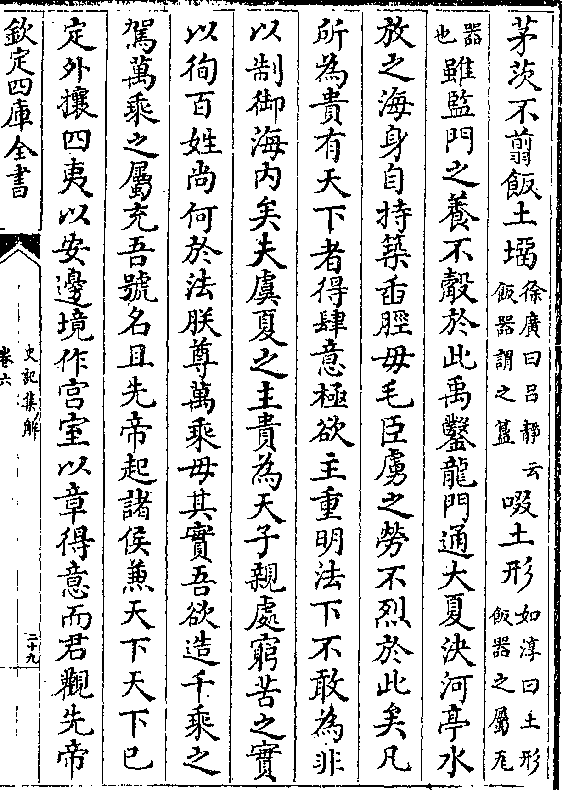 茅茨不翦飯土塯徐廣曰呂靜云飯器謂之簋啜土形如淳曰土形飯器之屬瓦
器也雖監門之養不觳於此禹鑿龍門通大夏決河亭水
放之海身自持築臿脛毋毛臣虜之勞不烈於此矣凡
所為貴有天下者得肆意極欲主重明法下不敢為非
以制御海内矣夫虞夏之主貴為天子親處窮苦之實
以徇百姓尚何於法朕尊萬乘毋其實吾欲造千乘之
駕萬乘之屬充吾號名且先帝起諸侯兼天下天下已
定外攘四夷以安邊境作宫室以章得意而君觀先帝
欽定四庫全書
史記集解
卷六
二十九